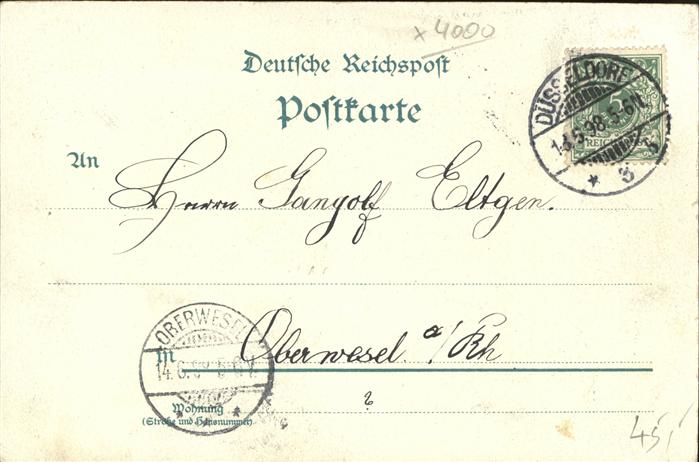 x 4000
Deutsche Reichspost
Postkarte
DÜSSELDORF
5.98.5-6N.
* 3
REICHSPOST
An
Herrn Gangolf Eltgen.
OBERWESEL
In Oberwesel a/Rh
Wohnung
(Straße und Hausnummer)
2
45,